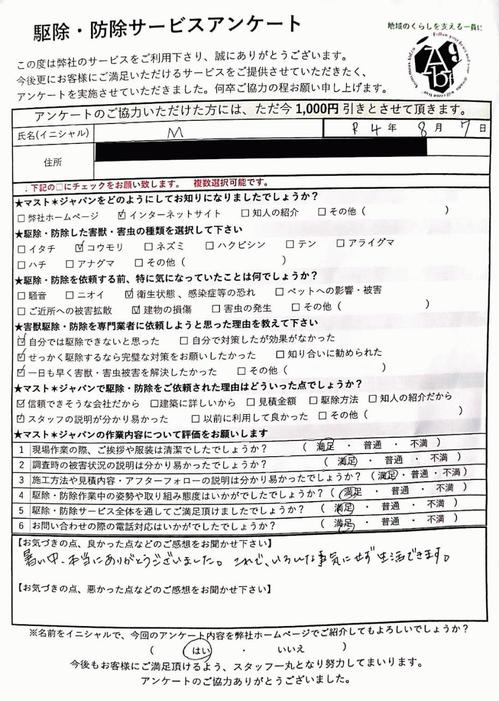 駆除・防除サービスアンケート
地域のくらしを支える一員に
この度は弊社のサービスをご利用下さり、誠にありがとうございます。
今後更にお客様にご満足いただけるサービスをご提供させていただきたく、
アンケートを実施させていただきました。何卒ご協力の程お願い申し上げます。
アンケートのご協力いただけた方には、ただ今1,000円引きとさせて頂きます。
氏名(イニシャル) M R4年 8月 7日
住所
.下記の□にチェックをお願い致します。 複数選択可能です。
★マスト✶ジャパンをどのようにしてお知りになりましたでしょうか?
□弊社ホームページ ☑インターネットサイト □知人の紹介 □その他( )
★駆除・防除した害獣・害虫の種類を選択して下さい
□イタチ ☑コウモリ □ネズミ □ハクビシン □テン □アライグマ
□ハチ □アナグマ □その他( )
★駆除・防除を依頼する前、特に気になっていたことは何でしょうか?
□騒音 □ニオイ ☑衛生状態、感染症等の恐れ □ペットへの影響・被害
□ご近所への被害拡散 ☑建物の損傷 □害虫の発生 □その他( )
★害獣駆除・防除を専門業者に依頼しようと思った理由を教えて下さい
☑自分では駆除できないと思った □自分で対策したが効果がなかった
☑せっかく駆除するなら完璧な対策をお願いしたかった □知り合いに勧められた
☑一日も早く害獣・害虫被害を解決したかった □その他( )
★マスト✶ジャパンで駆除・防除をご依頼された理由はどういった点でしょうか?
☑信頼できそうな会社だから □建築に詳しいから □見積金額 □駆除方法 □知人の紹介だから
☑スタッフの説明が分かり易かった □以前に利用して良かった □その他( )
★マスト✶ジャパンの作業内容について評価をお願いします
1 現場作業の際、ご挨拶や服装は清潔でしたでしょうか? (満足・普通・不満)
2 調査時の被害状況の説明は分かり易かったでしょうか? (満足・普通・不満)
3 施工方法や見積内容・アフターフォローの説明は分かり易かったでしょうか?(満足・普通・不満)
4 駆除・防除作業中の姿勢や取り組み態度はいかがでしたでしょうか?(満足・普通・不満)
5 駆除・防除サービス全体を通してご満足頂けましたでしょうか?(満足・普通・不満)
6 お問い合わせの際の電話対応はいかがでしたでしょうか? (満足・普通・不満)
【お気づきの点、良かった点などのご感想をお聞かせ下さい】
暑い中、本当にありがとうございました。これで、いろんな事気にせず生活できます。
【お気づきの点、悪かった点などのご感想をお聞かせ下さい】
※名前をイニシャルで、今回のアンケート内容を弊社ホームページでご紹介してもよろしいでしょうか?
( はい ・ いいえ )
今後もお客様にご満足頂けるよう、スタッフ一丸となり努力してまいります。
アンケートのご協力ありがとうございました。